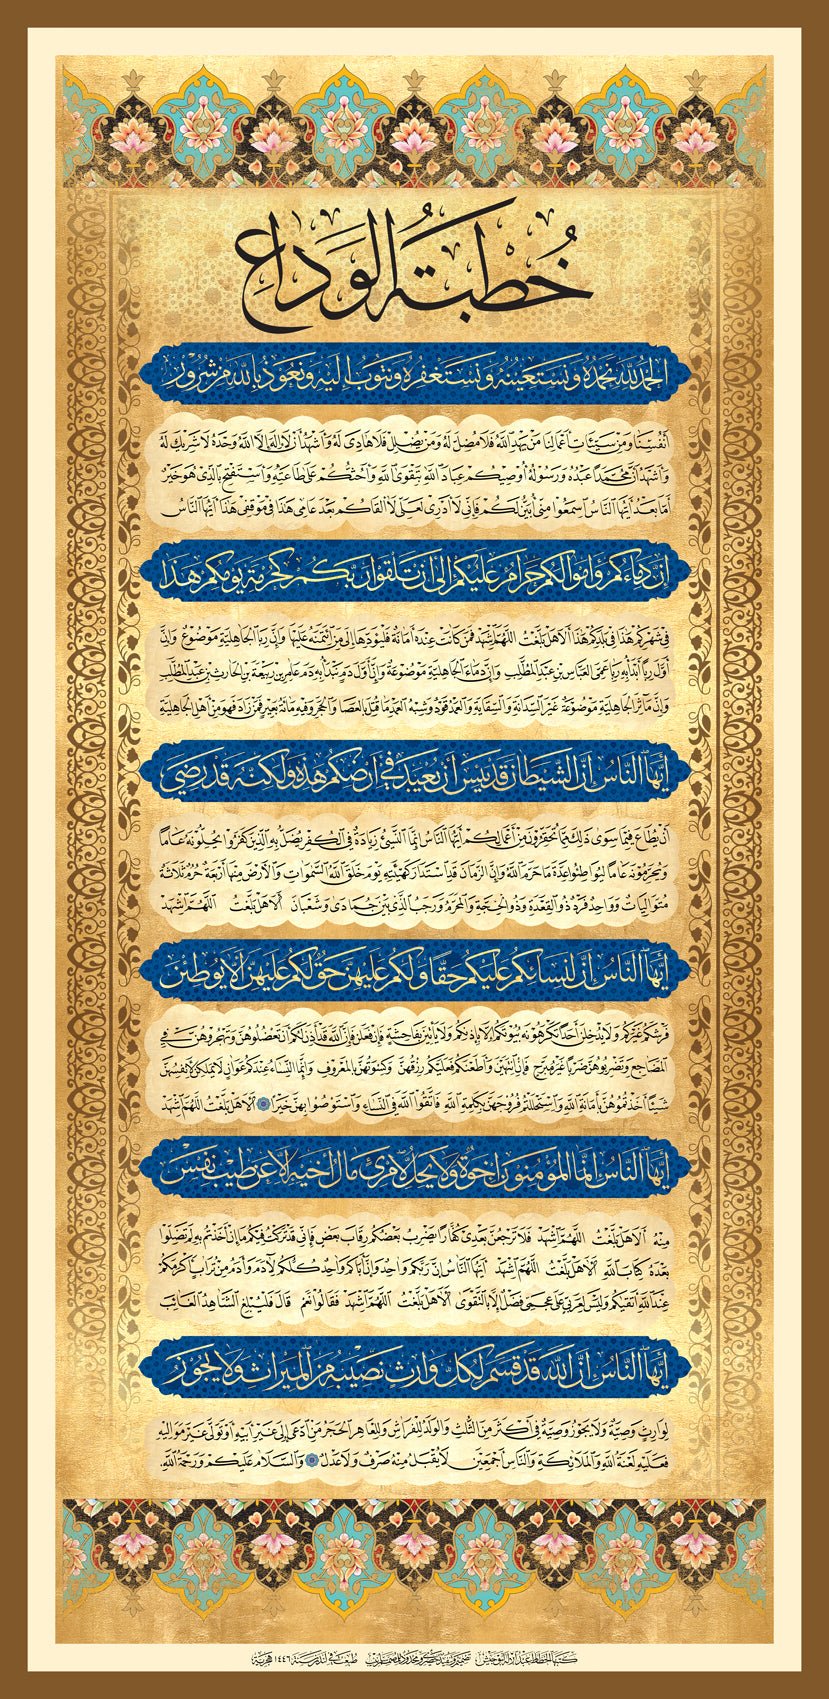 خُطْبَةُ الوَدَاعِ
الحَمْدُ لِلَّهِ نَحْمَدُهُ وَنَسْتَعِينُهُ وَنَسْتَغْفِرُهُ وَنَتُوبُ إِلَيْهِ وَنَعُوذُ بِاللهِ مِنْ شُرُورِ
أَنْفُسِنَا وَمِنْ سَيِّئَاتِ أَعْمَالِنَا مَنْ يَهْدِ اللهُ فَلَا مُضِلَّ لَهُ وَمَنْ يُضْلِلْ فَلَا هَادِيَ لَهُ وَأَشْهَدُ أَنْ لَا إِلَهَ إِلَّا اللهُ وَحْدَهُ لَا شَرِيكَ لَهُ
وَأَشْهَدُ أَنَّ مُحَمَّدًا عَبْدُهُ وَرَسُولُهُ أُوصِيكُمْ عِبَادَ اللهِ بِتَقْوَى اللهِ وَأَحُثُّكُمْ عَلَى طَاعَتِهِ وَأَسْتَفْتِحُ بِالَّذِي هُوَ خَيْرٌ
أَمَّا بَعْدُ أَيُّهَا النَّاسُ اسْمَعُوا مِنِّي أُبَيِّنْ لَكُمْ فَإِنِّي لَا أَدْرِي لَعَلِّي لَا أَلْقَاكُمْ بَعْدَ عَامِي هَذَا فِي مَوْقِفِي هَذَا أَيُّهَا النَّاسُ
إِنَّ دِمَاءَكُمْ وَأَمْوَالَكُمْ حَرَامٌ عَلَيْكُمْ إِلَى أَنْ تَلْقَوْا رَبَّكُمْ كَحُرْمَةِ يَوْمِكُمْ هَذَا
فِي شَهْرِكُمْ هَذَا فِي بَلَدِكُمْ هَذَا أَلَا هَلْ بَلَّغْتُ اللَّهُمَّ اشْهَدْ فَمَنْ كَانَتْ عِنْدَهُ أَمَانَةٌ فَلْيُؤَدِّهَا إِلَى مَنِ ائْتَمَنَهُ عَلَيْهَا وَإِنَّ رِبَا الجَاهِلِيَّةِ مَوْضُوعٌ وَإِنَّ
أَوَّلَ رِبًا أَبْدَأُ بِهِ رِبَا عَمِّيَ العَبَّاسِ بْنِ عَبْدِ المُطَّلِبِ وَإِنَّ دِمَاءَ الجَاهِلِيَّةِ مَوْضُوعَةٌ وَإِنَّ أَوَّلَ دَمٍ نَبْدَأُ بِهِ دَمُ عَامِرِ بْنِ رَبِيعَةَ بْنِ الحَارِثِ بْنِ عَبْدِ المُطَّلِبِ
وَإِنَّ مَآثِرَ الجَاهِلِيَّةِ مَوْضُوعَةٌ غَيْرَ السِّدَانَةِ وَالسِّقَايَةِ وَالعَمْدُ قَوَدٌ وَشِبْهُ العَمْدِ مَا قُتِلَ بِالعَصَا وَالحَجَرِ وَفِيهِ مِائَةُ بَعِيرٍ فَمَنْ زَادَ فَهُوَ مِنْ أَهْلِ الجَاهِلِيَّةِ
أَيُّهَا النَّاسُ إِنَّ الشَّيْطَانَ قَدْ يَئِسَ أَنْ يُعْبَدَ فِي أَرْضِكُمْ هَذِهِ وَلَكِنَّهُ قَدْ رَضِيَ
أَنْ يُطَاعَ فِيمَا سِوَى ذَلِكَ مِمَّا تَحْقِرُونَ مِنْ أَعْمَالِكُمْ أَيُّهَا النَّاسُ إِنَّمَا النَّسِيءُ زِيَادَةٌ فِي الكُفْرِ يُضَلُّ بِهِ الَّذِينَ كَفَرُوا يُحِلُّونَهُ عَامًا
وَيُحَرِّمُونَهُ عَامًا لِيُوَاطِئُوا عِدَّةَ مَا حَرَّمَ اللهُ وَإِنَّ الزَّمَانَ قَدِ اسْتَدَارَ كَهَيْئَتِهِ يَوْمَ خَلَقَ اللهُ السَّمَوَاتِ وَالأَرْضَ مِنْهَا أَرْبَعَةٌ حُرُمٌ ثَلَاثَةٌ
مُتَوَالِيَاتٌ وَوَاحِدٌ فَرْدٌ ذُو القِعْدَةِ وَذُو الحِجَّةِ وَالمُحَرَّمُ وَرَجَبُ الَّذِي بَيْنَ جُمَادَى وَشَعْبَانَ أَلَا هَلْ بَلَّغْتُ اللَّهُمَّ اشْهَدْ
أَيُّهَا النَّاسُ إِنَّ لِنِسَائِكُمْ عَلَيْكُمْ حَقًّا وَلَكُمْ عَلَيْهِنَّ حَقٌّ لَكُمْ عَلَيْهِنَّ أَلَّا يُوطِئْنَ
فُرُشَكُمْ غَيْرَكُمْ وَلَا يُدْخِلْنَ أَحَدًا تَكْرَهُونَهُ بُيُوتَكُمْ إِلَّا بِإِذْنِكُمْ وَلَا يَأْتِينَ بِفَاحِشَةٍ فَإِنْ فَعَلْنَ فَإِنَّ اللهَ قَدْ أَذِنَ لَكُمْ أَنْ تَعْضُلُوهُنَّ وَتَهْجُرُوهُنَّ فِي
المَضَاجِعِ وَتَضْرِبُوهُنَّ ضَرْبًا غَيْرَ مُبَرِّحٍ فَإِنِ انْتَهَيْنَ وَأَطَعْنَكُمْ فَعَلَيْكُمْ رِزْقُهُنَّ وَكِسْوَتُهُنَّ بِالمَعْرُوفِ وَإِنَّمَا النِّسَاءُ عِنْدَكُمْ عَوَانٍ لَا يَمْلِكْنَ لِأَنْفُسِهِنَّ
شَيْئًا أَخَذْتُمُوهُنَّ بِأَمَانَةِ اللهِ وَاسْتَحْلَلْتُمْ فُرُوجَهُنَّ بِكَلِمَةِ اللهِ فَاتَّقُوا اللهَ فِي النِّسَاءِ وَاسْتَوْصُوا بِهِنَّ خَيْرًا أَلَا هَلْ بَلَّغْتُ اللَّهُمَّ اشْهَدْ
أَيُّهَا النَّاسُ إِنَّمَا المُؤْمِنُونَ إِخْوَةٌ وَلَا يَحِلُّ لِامْرِئٍ مَالُ أَخِيهِ إِلَّا عَنْ طِيبِ نَفْسٍ
مِنْهُ أَلَا هَلْ بَلَّغْتُ اللَّهُمَّ اشْهَدْ فَلَا تَرْجِعُنَّ بَعْدِي كُفَّارًا يَضْرِبُ بَعْضُكُمْ رِقَابَ بَعْضٍ فَإِنِّي قَدْ تَرَكْتُ فِيكُمْ مَا إِنْ أَخَذْتُمْ بِهِ لَمْ تَضِلُّوا
بَعْدَهُ كِتَابَ اللهِ أَلَا هَلْ بَلَّغْتُ اللَّهُمَّ اشْهَدْ أَيُّهَا النَّاسُ إِنَّ رَبَّكُمْ وَاحِدٌ وَإِنَّ أَبَاكُمْ وَاحِدٌ كُلُّكُمْ لِآدَمَ وَآدَمُ مِنْ تُرَابٍ أَكْرَمُكُمْ
عِنْدَ اللهِ أَتْقَاكُمْ وَلَيْسَ لِعَرَبِيٍّ عَلَى عَجَمِيٍّ فَضْلٌ إِلَّا بِالتَّقْوَى أَلَا هَلْ بَلَّغْتُ اللَّهُمَّ اشْهَدْ فَقَالُوا نَعَمْ قَالَ فَلْيُبَلِّغِ الشَّاهِدُ الغَائِبَ
أَيُّهَا النَّاسُ إِنَّ اللهَ قَدْ قَسَمَ لِكُلِّ وَارِثٍ نَصِيبَهُ مِنَ المِيرَاثِ وَلَا يَجُوزُ
لِوَارِثٍ وَصِيَّةٌ وَلَا يَجُوزُ وَصِيَّةٌ فِي أَكْثَرَ مِنَ الثُّلُثِ وَالوَلَدُ لِلْفِرَاشِ وَلِلْعَاهِرِ الحَجَرُ مَنِ ادَّعَى إِلَى غَيْرِ أَبِيهِ أَوْ تَوَلَّى غَيْرَ مَوَالِيهِ
فَعَلَيْهِ لَعْنَةُ اللهِ وَالمَلَائِكَةِ وَالنَّاسِ أَجْمَعِينَ لَا يُقْبَلُ مِنْهُ صَرْفٌ وَلَا عَدْلٌ وَالسَّلَامُ عَلَيْكُمْ وَرَحْمَةُ اللهِ
سنة ١٤٤٦ هجرية